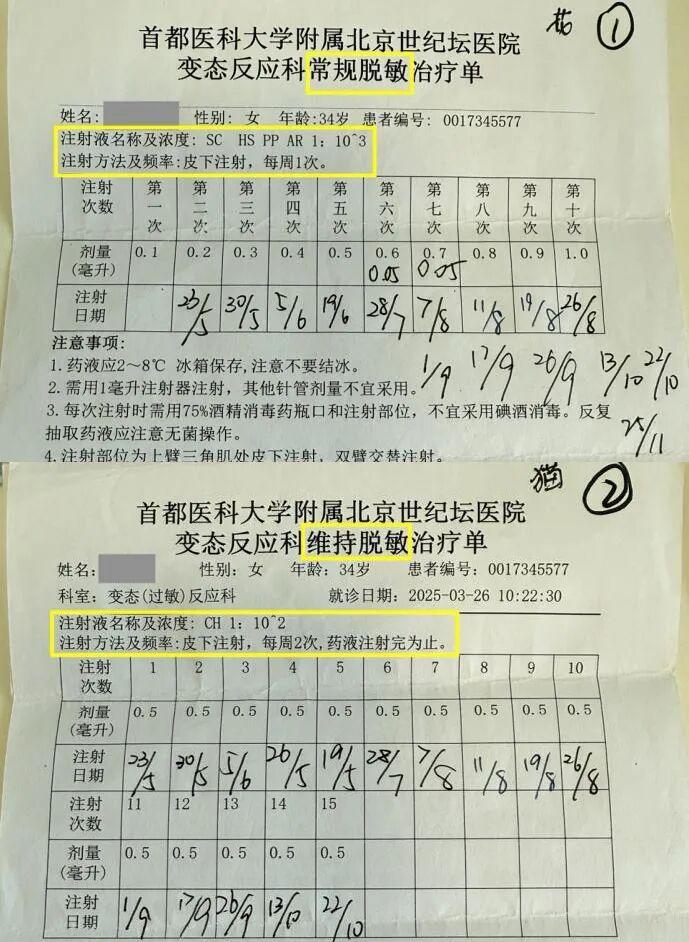 花 ①
首都医科大学附属北京世纪坛医院
变态反应科常规脱敏治疗单
姓名: 性别: 女 年龄:34岁 患者编号: 0017345577
注射液名称及浓度: SC HS PP AR 1: 10^3
注射方法及频率:皮下注射, 每周1次。
注射次数 第一次 第二次 第三次 第四次 第五次 第六次 第七次 第八次 第九次 第十次
剂量(毫升) 0.1 0.2 0.3 0.4 0.5 0.6 0.7 0.8 0.9 1.0
0.05 0.05
注射日期 23/5 30/5 5/6 19/6 28/7 7/8 11/8 19/8 26/8
注意事项:
1/9 17/9 26/9 13/10 22/10
1.药液应2～8℃ 冰箱保存,注意不要结冰。
2.需用1毫升注射器注射, 其他针管剂量不宜采用。
3.每次注射时需用75%酒精消毒药瓶口和注射部位, 不宜采用碘酒消毒。反复
抽取药液应注意无菌操作。
25/11
4.注射部位为上臂三角肌处皮下注射, 双臂交替注射。
猫 ②
首都医科大学附属北京世纪坛医院
变态反应科维持脱敏治疗单
姓名: 性别: 女 年龄: 34岁 患者编号: 0017345577
科室: 变态(过敏)反应科 就诊日期: 2025-03-26 10:22:30
注射液名称及浓度: CH 1: 10^2
注射方法及频率:皮下注射, 每周2次,药液注射完为止。
注射次数 1 2 3 4 5 6 7 8 9 10
剂量(毫升) 0.5 0.5 0.5 0.5 0.5 0.5 0.5 0.5 0.5 0.5
注射日期 23/5 30/5 5/6 26/5 19/5 28/7 7/8 11/8 19/8 26/8
注射次数 11 12 13 14 15
剂量(毫升) 0.5 0.5 0.5 0.5 0.5
注射日期 1/9 17/9 26/9 13/10 22/10